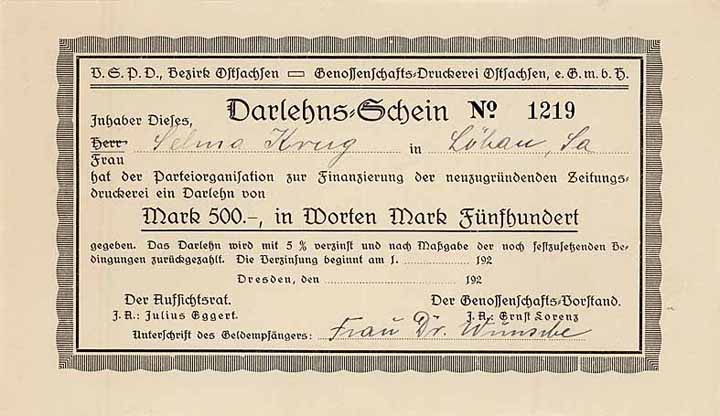 U. S. P. D., Bezirk Ostsachsen — Genossenschafts-Druckerei Ostsachsen, e. G. m. b. H.
Darlehns-Schein No 1219
Inhaber Dieses,
Herr Selma Krug in Löbau, Sa
Frau
hat der Parteiorganisation zur Finanzierung der neuzugründenden Zeitungs-
druckerei ein Darlehn von
Mark 500.-, in Worten Mark Fünfhundert
gegeben. Das Darlehn wird mit 5 % verzinst und nach Maßgabe der noch festzusetzenden Be-
dingungen zurückgezahlt. Die Verzinsung beginnt am 1. 192
Dresden, den 192
Der Aufsichtsrat. Der Genossenschafts-Vorstand.
J. A.: Julius Eggert. J. A.: Ernst Lorenz
Unterschrift des Geldempfängers: Frau Dr. Wünsche